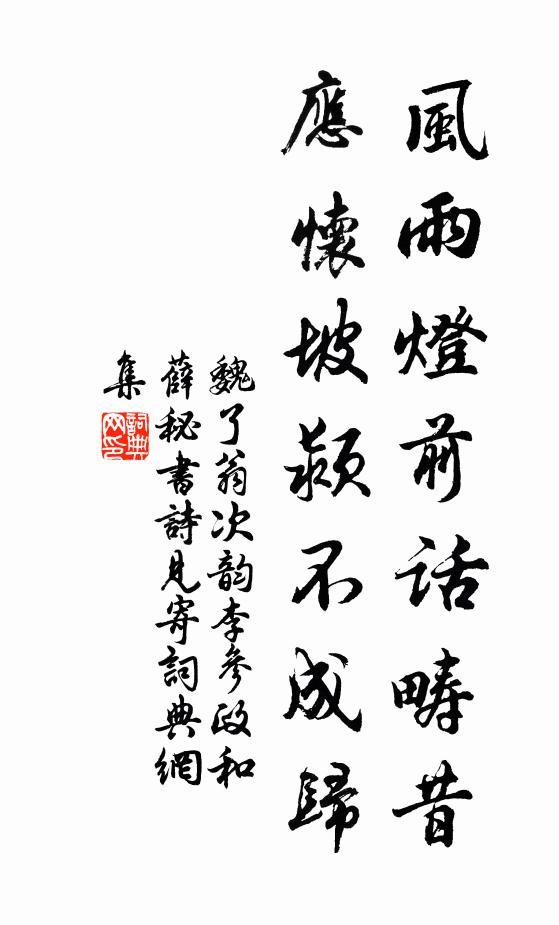 風雨燈前話疇昔
應懷坡潁不成歸
魏了翁次韵李參政和
薛秘書詩見寄詞典網
集
詞典网印